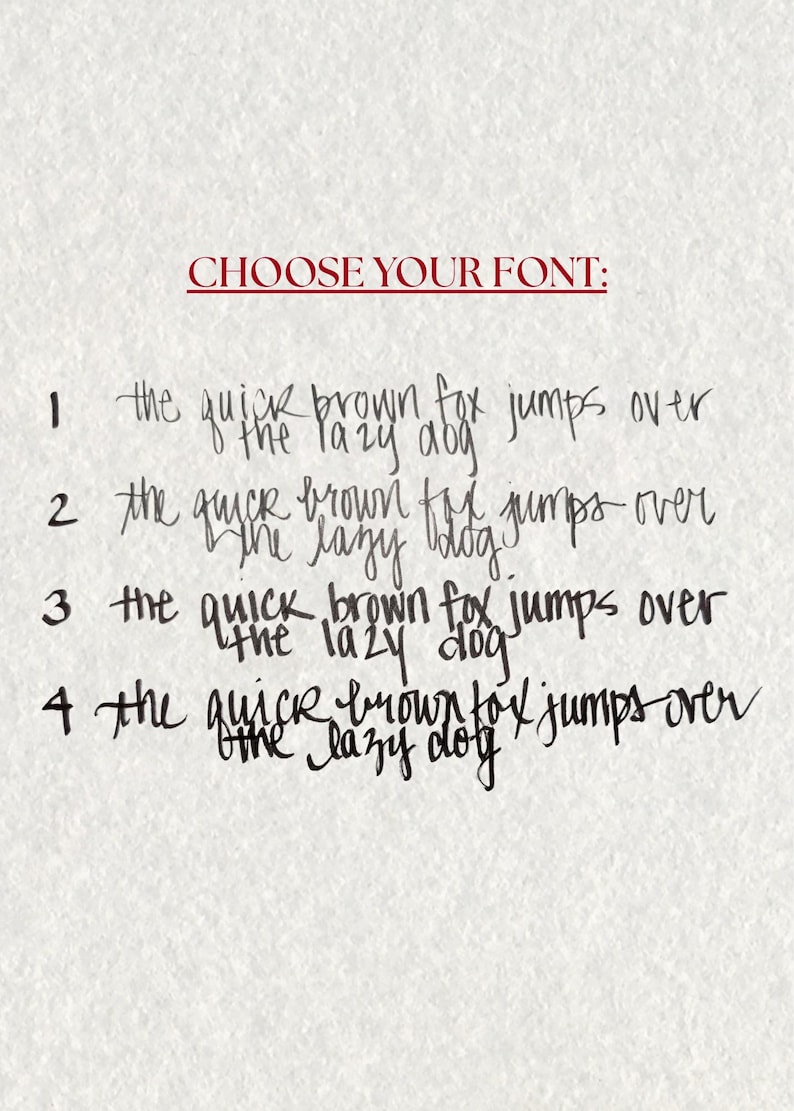 CHOOSE YOUR FONT:
1 the quick brown fox jumps over
the lazy dog
2 the quick brown fox jumps over
the lazy dog
3 the quick brown fox jumps over
the lazy dog
4 the quick brown fox jumps over
the lazy dog